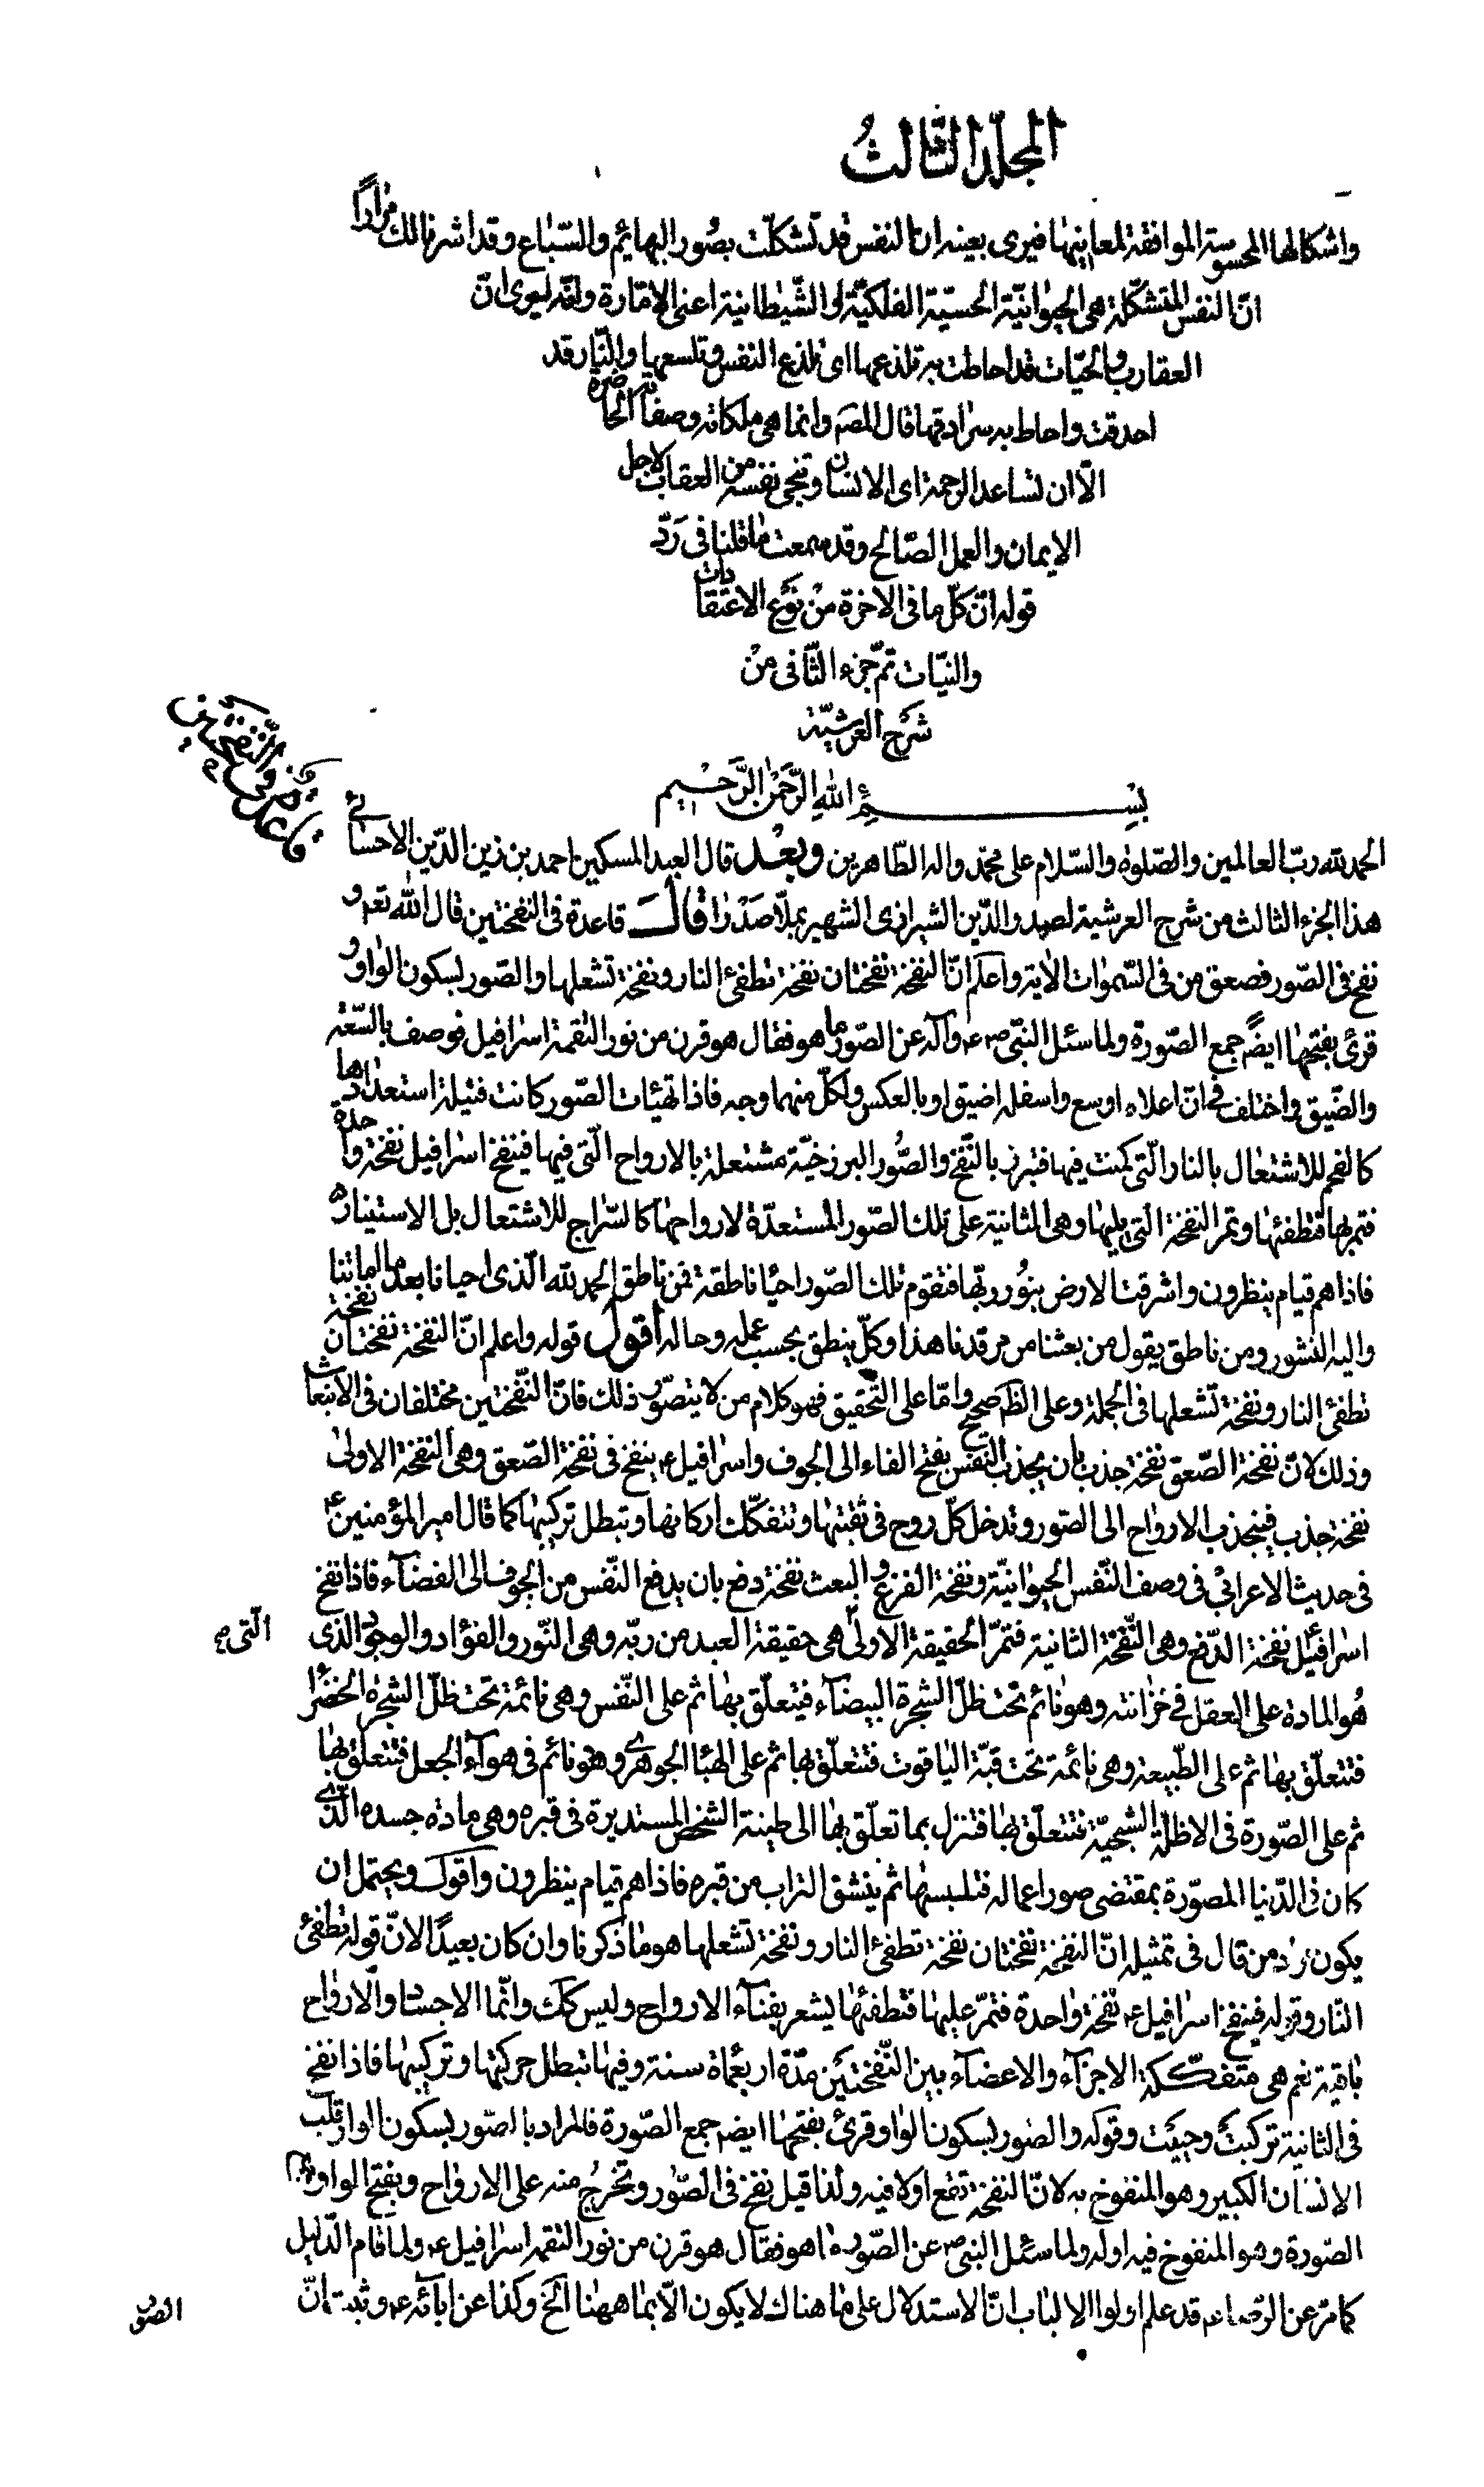 المجلد الثالث
واشكالها المحسوسة الموافقة لمعانيها فيرى بعينه ان النفس قد تشكلت بصور البهائم والسباع وقد اشرنا لك مرارا
انّ النفس المتشكلة هى الحيوانيّة الحسيّة الفلكيّة او الشّيطانية اعنى الامّارة وانّه ليرى انّ
العقارب والحيّات قد احاطت به تلذعها اى تلذع النفس وتلسعها والنّار قد
احدقت واحاط به سرادقها قال المصَ وانما هى ملكاته وصفاته الحاضرة
الّا ان تساعد الرحمة اى الانسان وتنجى نفسه من العقاب لاجل
الايمان والعمل الصّالح وقد سمعت ما قلنا فى رَدّ
قوله انّ كلّ ما فى الاخرة من نوع الاعتقادات
والنيّات تمّ جزء الثّانى من
شرح العرشيّة
قاعدة فى النّفختين
بسم الله الرّحمن الرّحيم
الحمد لله ربّ العالمين والصّلوة والسّلام على محمّد واله الطّاهرين وبعد قال العبد المسكين احمد بن زين الدّين الاحسائى
هذا الجزء الثالث من شرح العرشية لصدر الدّين الشيرازى الشهير بملّا صَدْرا قال قاعدة فى النفختين قال الله تعه و
نفخ فى الصّور فصعق من فى السّموات الاية واعلم انّ النفخة نفختان نفخة تطفئ النار ونفخة تشعلها والصّور بسكون الواو و
قرئ بفتحها ايضً جمع الصّورة ولما سئل النبّى ص ع وآله عن الصّور ما هو فقال هو قرن من نور التقمه اسرافيل فوصف بالسّعة
والضّيق واختلف فى انّ اعلاه اوسع واسفله اضيق او بالعكس ولكلّ منهما وجه فاذا تهيّات الصّور كانت فتيلة استعدادها
كالفحم للاشتعال بالنار الّتى كمنت فيها فتبرز بالنّفخ والصُّور البرزخيّة مشتعلة بالارواح الّتى فيها فينفخ اسرافيل نفخة واحدة
فتمرّ بها فتطفئها وتمرّ النفخة الّتى يليها وهى الثانية على تلك الصّور المستعدّة لارواحها كالسّراج للاشتعال بل الاستنارة
فاذا هم قيام ينظرون واشرقت الارض بنُور ربّها فتقوم تلك الصّور احيًا ناطقة فمن ناطق الحمد لله الّذى احيانا بعد ما اماتنا
واليه النشور ومن ناطق يقول من بعثنا من مرقدنا هذا وكلّ ينطق بحسب عمله وحاله اقول قوله واعلم انّ النفخة نفختان نفخة
تطفئ النار ونفخة تشعلها فى الجملة وعلى الظّ صحيح وامّا على التّحقيق فهو كلام من لا يتصوّر ذلك فانّ النّفختين مختلفان فى الانبعاث
وذلك لانّ نفخة الصّعق نفخة جذب بان يجذب النّفس بفتح الفاء الى الجوف واسرافيل ع ينفخ فى نفخة الصّعق وهى النفخة الاولىٰ
نفخة جذب فينجذب الارواح الى الصّور وتدخل كلّ روح فى ثقبتها وتتفكّك اركانها وتبطل تركيبها كما قال امير المؤمنين ع
فى حديث الاعرابىّ فى وصف النّفس الحيوانيّة ونفخة الفزع والبعث نفخة دفع بان يدفع النّفس من الجوف الى الفضآء فاذا نفخ
اسرافيل نفخة الدّفع وهى النّفخة الثانية فتمرّ الحقيقة الاولى هى حقيقة العبد من ربّه وهى النّور والفؤاد والوجود الّذى
الّتى ص
هُو المادة على العقل فى خزانته وهو نائم تحت ظلّ الشجرة البيضآء فيتعلّق بها ثم على النّفس وهى نائمة تحت ظلّ الشجرة الخضرا
فتتعلّق بها ثم على الطّبيعة وهى نائمة تحت قبّة الياقوت فتتعلّق بها ثم على الهبا الجوهرى وهو نائم فى هوآء الجعل فتتعلّق بها
ثم على الصّورة فى الاظلّة الشبحيّة فتتعلّق بها فتنزل بما تعلّق بها الى طينة الشخص المستديرة فى قبره وهى مادّه جسده الّذى
كان فى الدّنيا المصوّرة بمقتضى صور اعماله فتلبسها ثم ينشق التراب من قبره فاذا هم قيام ينظرون واقول ويحتمل ان
يكون رد من قال فى تمثيله انّ النفخة نفختان نفخة تطفئ النار ونفخة تشعلها هو ما ذكرنا وان كان بعيدًا الا انّ قوله تطفئ
النّار وقوله فينفخ اسرافيل ع نفخة واحدة فتمرّ عليها فتطفئها يشعر بفنآء الارواح وليس كك وانّما الاجساد والارواح
باقية نعم هى متفكّكة الاجزآء والاعضآء بين النّفختين مدّة اربعماة سنة وفيها تبطل حركتها وتركيبها فاذا نفخ
فى الثانية تركبت وحييت وقوله والصور بسكون الواو وقرئ بفتحها ايضه جمع الصّورة فالمراد بالصّور بسكون الواو قلب
الانسان الكبير وهو المنفوخ به لانّ النفخة تقع اولا فيه ولذا قيل نفخ فى الصّور وتخرُج منه على الارواح وبفتح الواو جمع
الصّورة وهو المنفوخ فيه اوله ولما سئل النبى ص عن الصّور ما هو فقال هو قرن من نور التقمه اسرافيل ع ولما قام الدّليل
كما مرّ عن الرّضا ع قد علم اولوا الالباب انّ الاستدلال على ما هناك لا يكون الّا بما ههنا الخ وكذا عن ابآئه ع وثبت انّ
الصّور